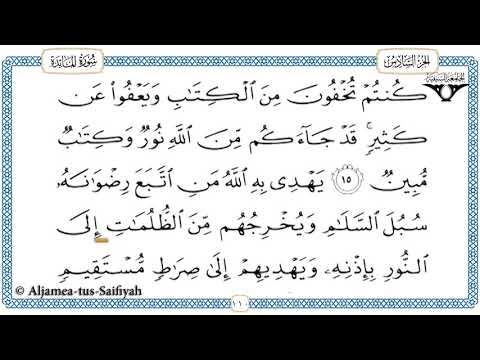 الجزء السادس
سورة المائدة
الجامعة السيفية
كُنتُمۡ تُخۡفُونَ مِنَ ٱلۡكِتَٰبِ وَيَعۡفُواْ عَن
كَثِيرٖۚ قَدۡ جَآءَكُم مِّنَ ٱللَّهِ نُورٞ وَكِتَٰبٞ
مُّبِينٞ ١٥ يَهۡدِي بِهِ ٱللَّهُ مَنِ ٱتَّبَعَ رِضۡوَٰنَهُۥ
سُبُلَ ٱلسَّلَٰمِ وَيُخۡرِجُهُم مِّنَ ٱلظُّلُمَٰتِ إِلَى
ٱلنُّورِ بِإِذۡنِهِۦ وَيَهۡدِيهِمۡ إِلَىٰ صِرَٰطٖ مُّسۡتَقِيمٖ
© Aljamea-tus-Saifiyah
١١٠